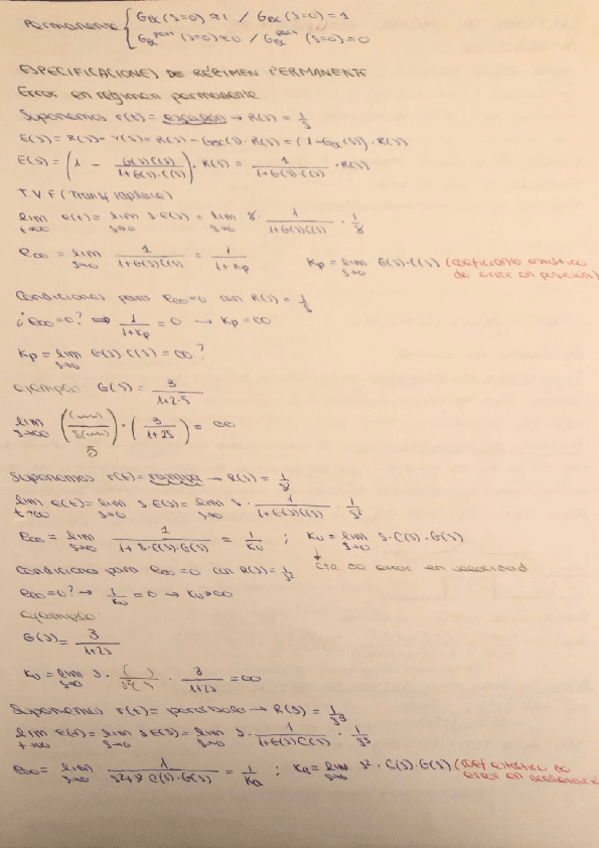 Permanente { G_BC(s=0) ≈ 1 / G_BC(s=0) = 1
G_BC^pert(s=0) ≈ 0 / G_BC^pert(s=0) = 0
ESPECIFICACIONES DE RÉGIMEN PERMANENTE
Error en régimen permanente
Suponemos r(t) = escalón → R(s) = 1/s
E(s) = R(s) - Y(s) = R(s) - G_BC(s)·R(s) = (1 - G_BC(s))·R(s)
E(s) = (1 - G(s)C(s)/(1+G(s)·C(s)))·R(s) = 1/(1+G(s)·C(s)) ·R(s)
T.V.F (Transf laplace)
lim t→∞ e(t) = lim s→0 s·E(s) = lim s→0 s· 1/(1+G(s)C(s)) · 1/s
e∞ = lim s→0 1/(1+G(s)C(s)) = 1/(1+Kp) Kp = lim s→0 G(s)·C(s) (coeficiente estático de error en posición)
Condiciones para e∞=0 con R(s) = 1/s
¿e∞=0? ⇒ 1/(1+Kp) = 0 → Kp = ∞
Kp = lim s→0 G(s)·C(s) = ∞?
ejemplo G(s) = 3/(1+2·s)
lim s→∞ ( / s( ))·(3/(1+2s)) = ∞
5
Suponemos r(t) = rampa → R(s) = 1/s²
lim t→∞ e(t) = lim s→0 s·E(s) = lim s→0 s· 1/(1+G(s)C(s)) · 1/s²
e∞ = lim s→0 1/(1+s·C(s)·G(s)) = 1/Kv ; Kv = lim s→0 s·C(s)·G(s)
Condiciones para e∞=0 con R(s) = 1/s² ↓ cte de error en velocidad
e∞=0? → 1/Kv = 0 → Kv→∞
ejemplo:
G(s) = 3/(1+2s)
Kv = lim s→0 s· ( )/s²( ) · 3/(1+2s) = ∞
Suponemos r(t) = parábola → R(s) = 1/s³
lim t→∞ e(t) = lim s→0 s·E(s) = lim s→0 s· 1/(1+G(s)C(s)) · 1/s³
e∞ = lim s→0 1/(s²+s²·C(s)·G(s)) = 1/Ka ; Ka = lim s→0 s²·C(s)·G(s) (coef estático de error en aceleración